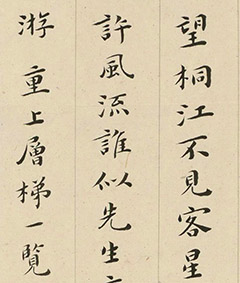 望桐江不見客星
許風流誰似先生
游重上層梯一覽